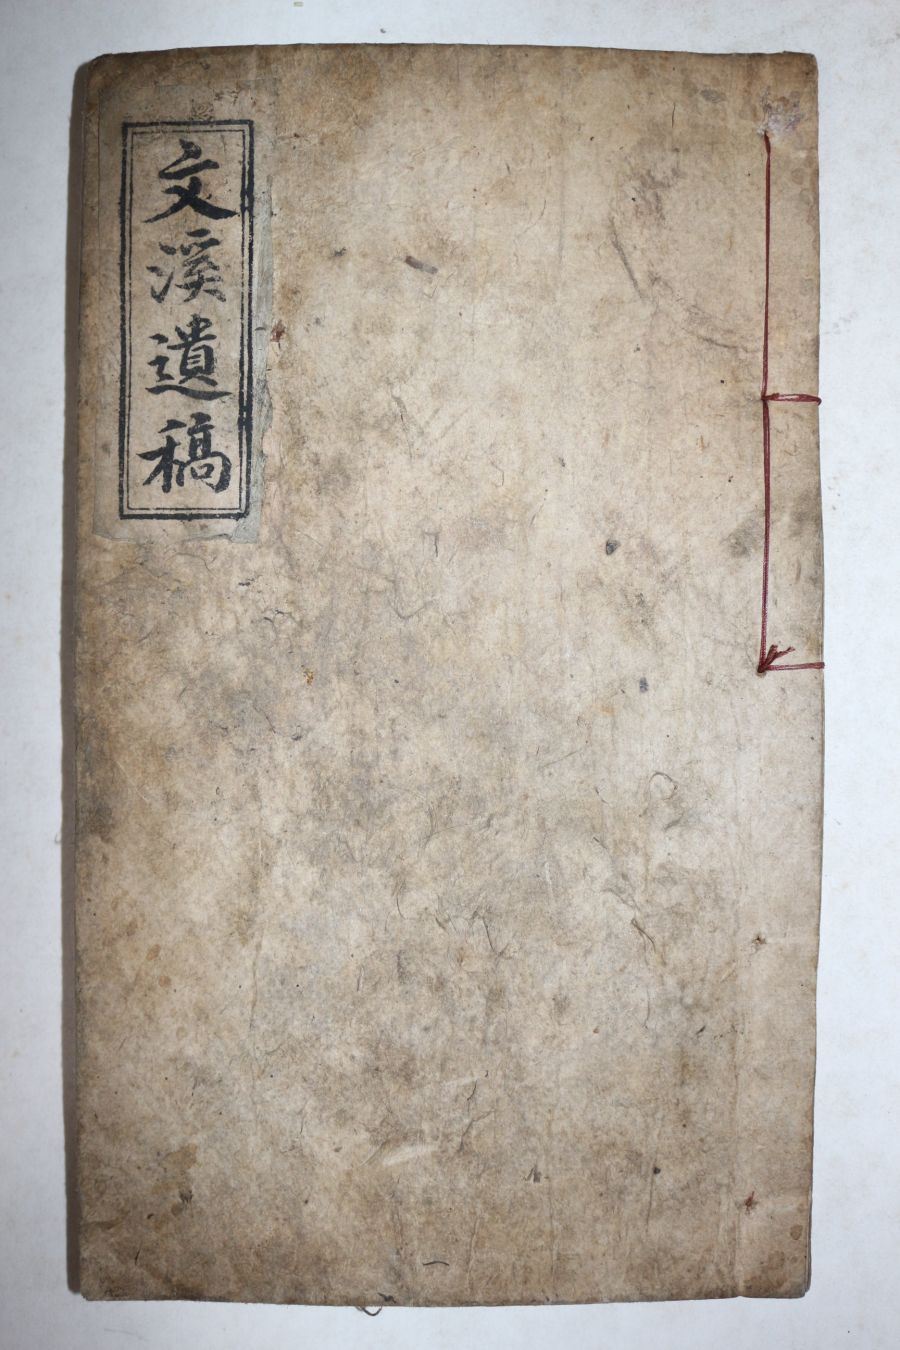 文溪遺稿